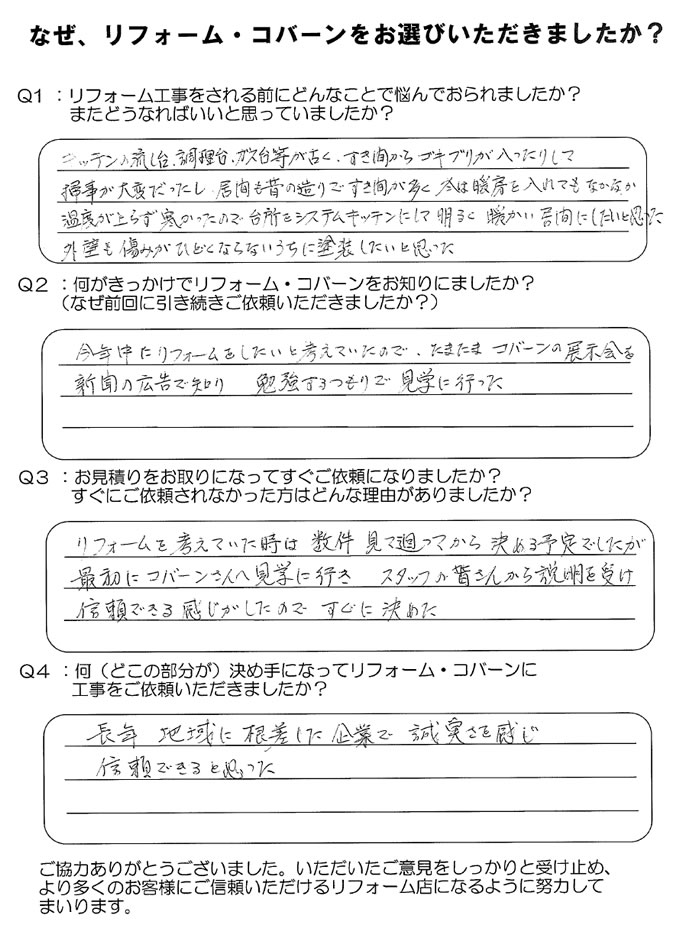 なぜ、リフォーム・コバーンをお選びいただきましたか？
Q1 ：リフォーム工事をされる前にどんなことで悩んでおられましたか？
またどうなればいいと思っていましたか？
キッチンの流し台、調理台、ガス台等が古く、すき間からゴキブリが入ったりして
掃事が大変だったし 居間も昔の造りですき間が多く 冬は暖房を入れてもなかなか
温度が上らず寒かったので台所をシステムキッチンにして明るく 暖かい居間にしたいと思った
外壁も傷みがひどくならないうちに塗装したいと思った
Q2 ：何がきっかけでリフォーム・コバーンをお知りにましたか？
（なぜ前回に引き続きご依頼いただきましたか？）
今年中にリフォームをしたいと考えていたので、たまたま コバーンの展示会を
新聞の広告で知り 勉強するつもりで見学に行った
Q3 ：お見積りをお取りになってすぐご依頼になりましたか？
すぐにご依頼されなかった方はどんな理由がありましたか？
リフォームを考えていた時は 数件 見て廻ってから 決める予定でしたが
最初にコバーンさんへ見学に行き スタッフの皆さんから説明を受け
信頼できる感じがしたので すぐに 決めた
Q4 ：何（どこの部分が）決め手になってリフォーム・コバーンに
工事をご依頼いただきましたか？
長年 地域に根差した企業で 誠実さを感じ
信頼できると思った
ご協力ありがとうございました。いただいたご意見をしっかりと受け止め、
より多くのお客様にご信頼いただけるリフォーム店になるように努力して
まいります。